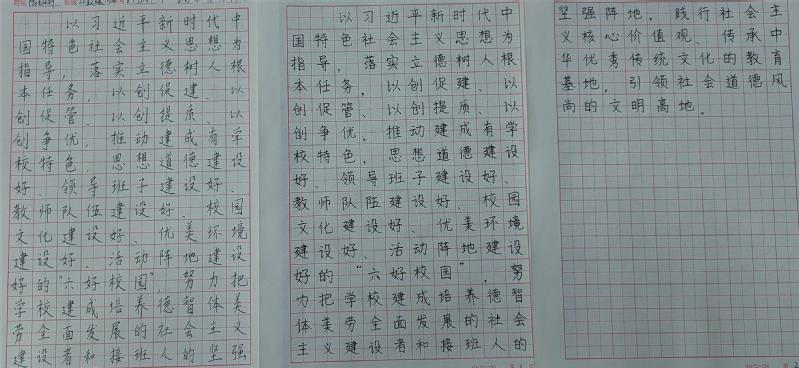 以习近平新时代中
国特色社会主义思想为
指导，落实立德树人根
本任务，以创促建、以
创促管、以创提质、以
创争优，推动建成有学
校特色，思想道德建设
好、领导班子建设好、
教师队伍建设好、校园
文化建设好、优美环境
建设好、活动阵地建设
好的“六好校园”，努力把
学校建成培养德智体美
劳全面发展的社会主义
建设者和接班人的坚强
以习近平新时代中
国特色社会主义思想为
指导，落实立德树人根
本任务，以创促建、以
创促管、以创提质、以
创争优，推动建成有学
校特色，思想道德建设
好、领导班子建设好、
教师队伍建设好、校园
文化建设好、优美环境
建设好、活动阵地建设
好的“六好校园”，努
力把学校建成培养德智
体美劳全面发展的社会
主义建设者和接班人的
坚强阵地，践行社会主
义核心价值观、传承中
华优秀传统文化的教育
基地，引领社会道德风
尚的文明高地。